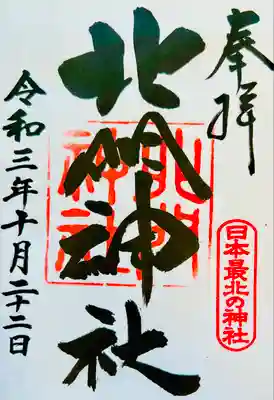 奉拝
日本最北の神社
北門神社
北門神社
令和三年十月二十二日